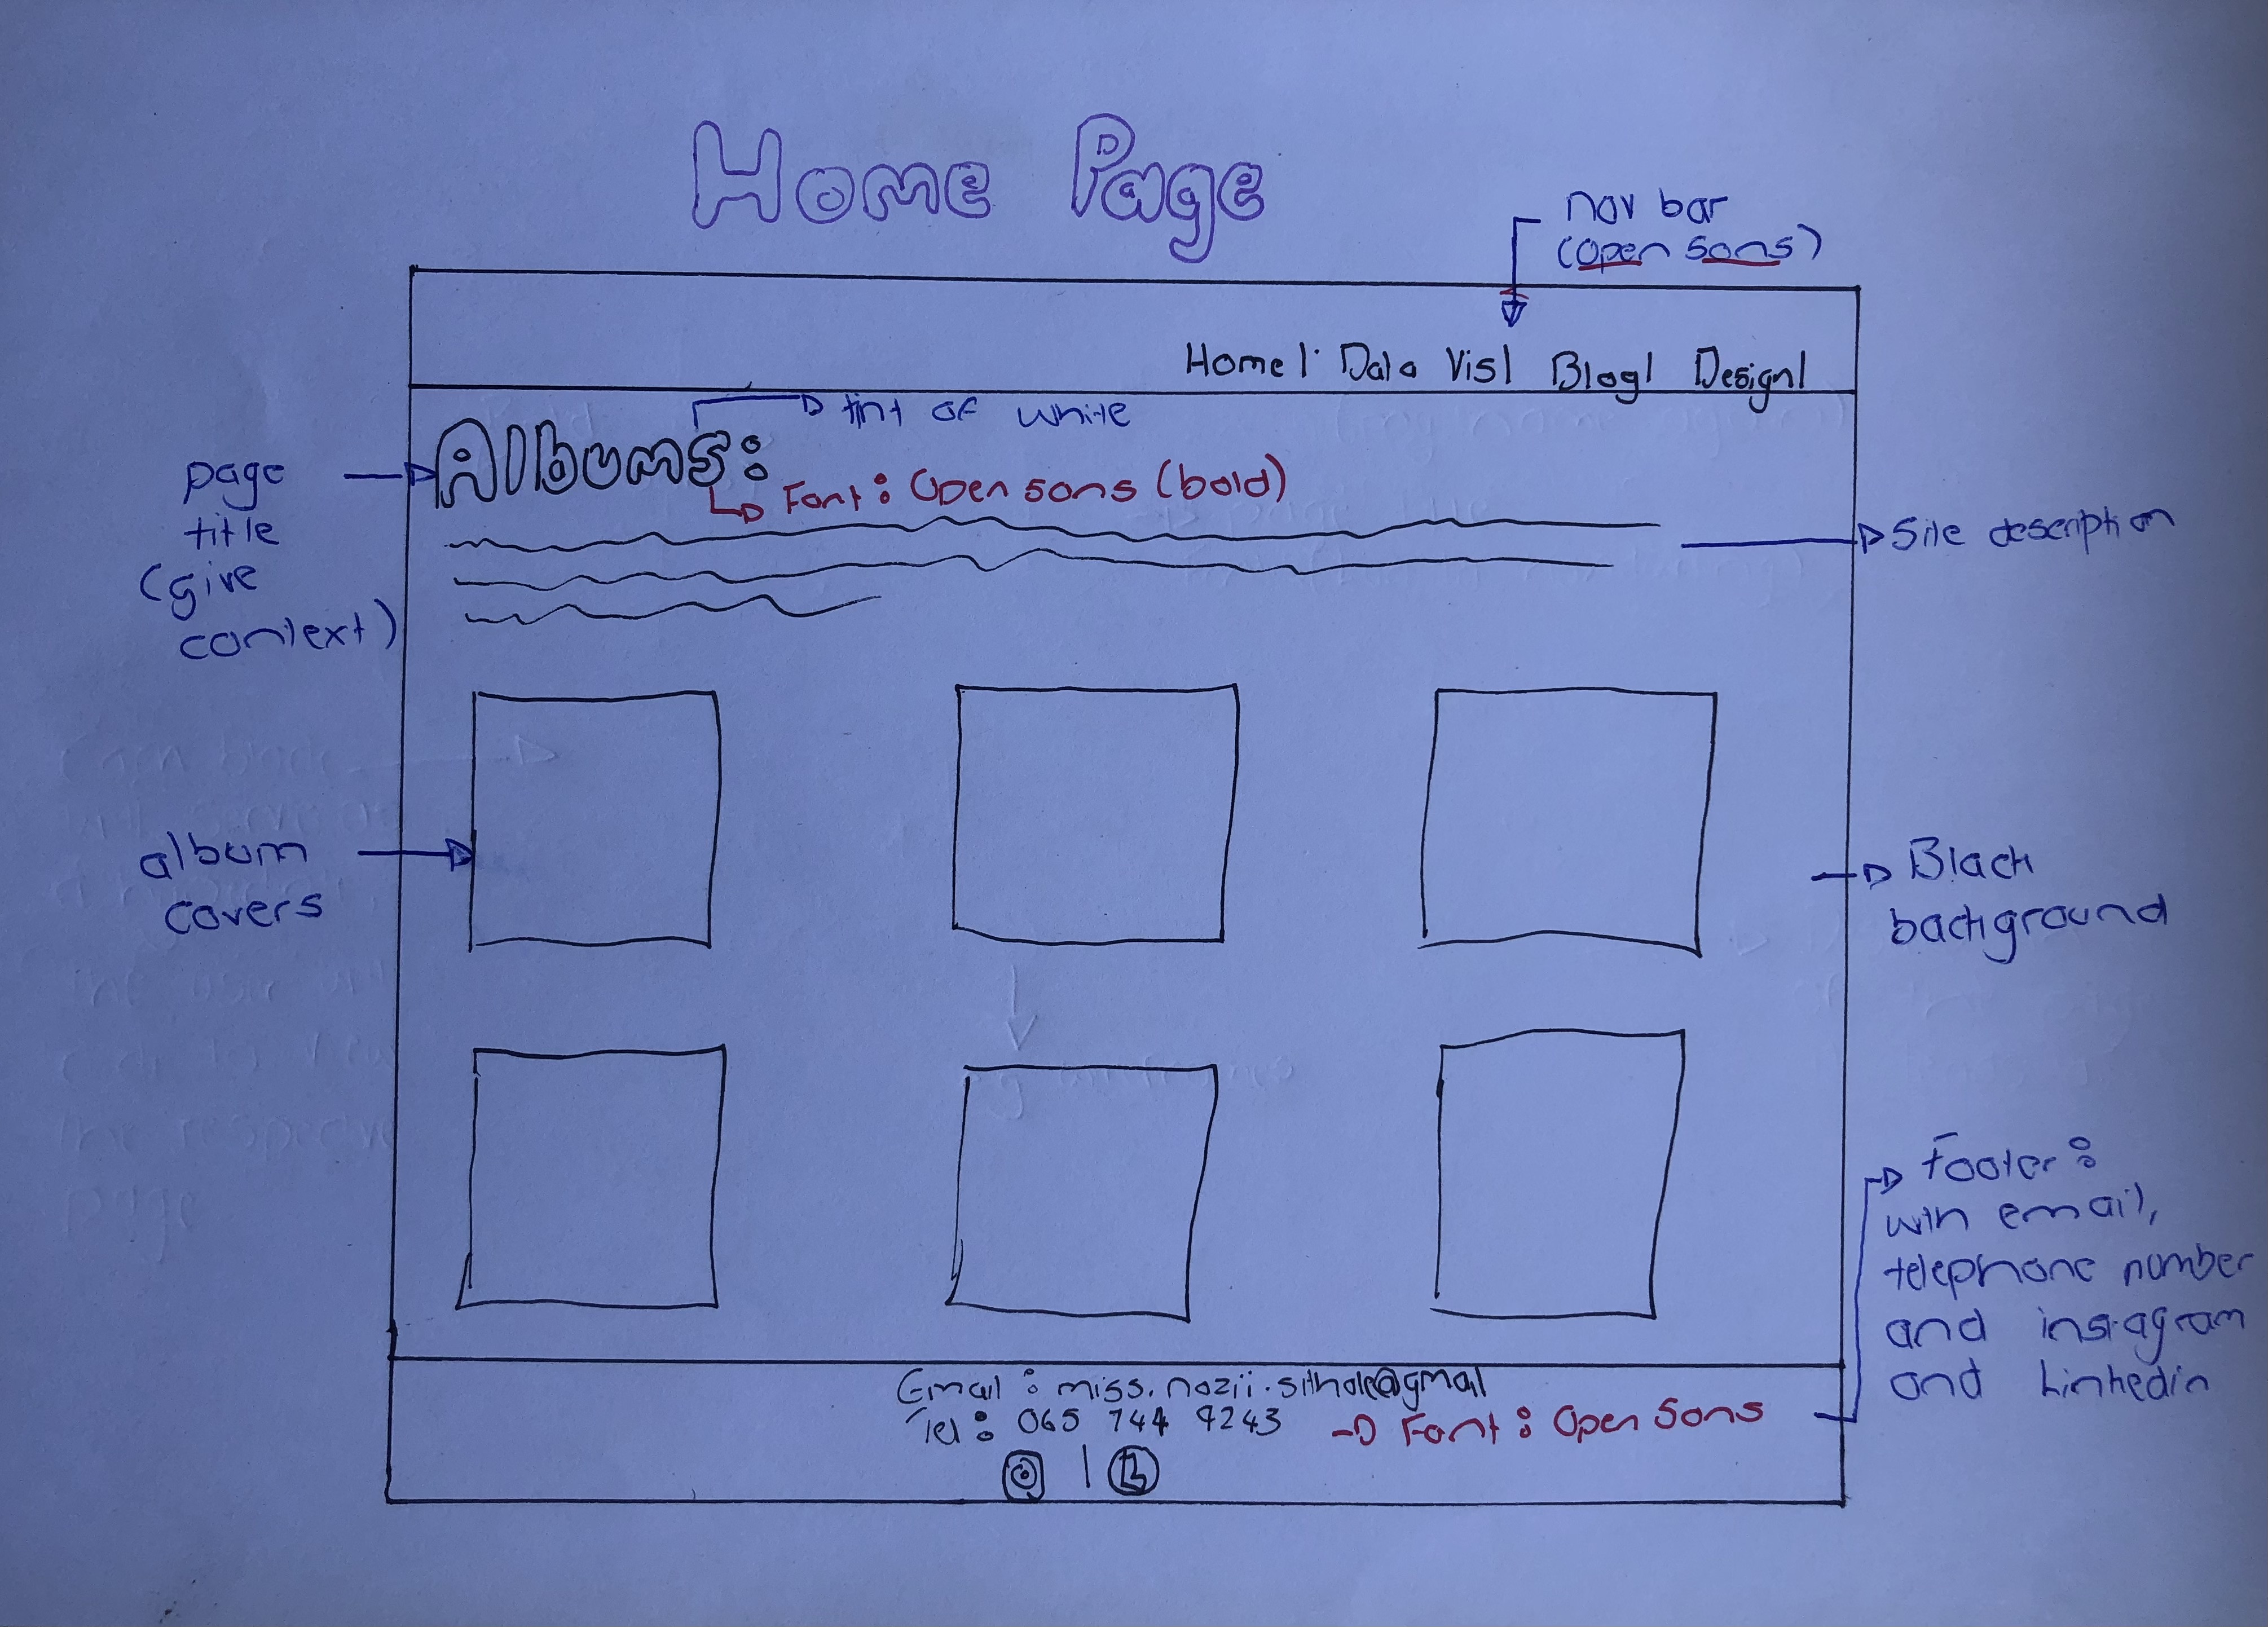 Home Page
nav bar
(open sans)
Home | Data Vis | Blog | Design |
tint of white
Albums:
Font: Open sans (bold)
page
title
(give
context)
Site description
album
covers
Black
background
Footer:
with email,
telephone number
and instagram
and Linkedin
Email: miss.nozii.sithole@gmail
Tel: 065 744 9243
Font: Open Sans